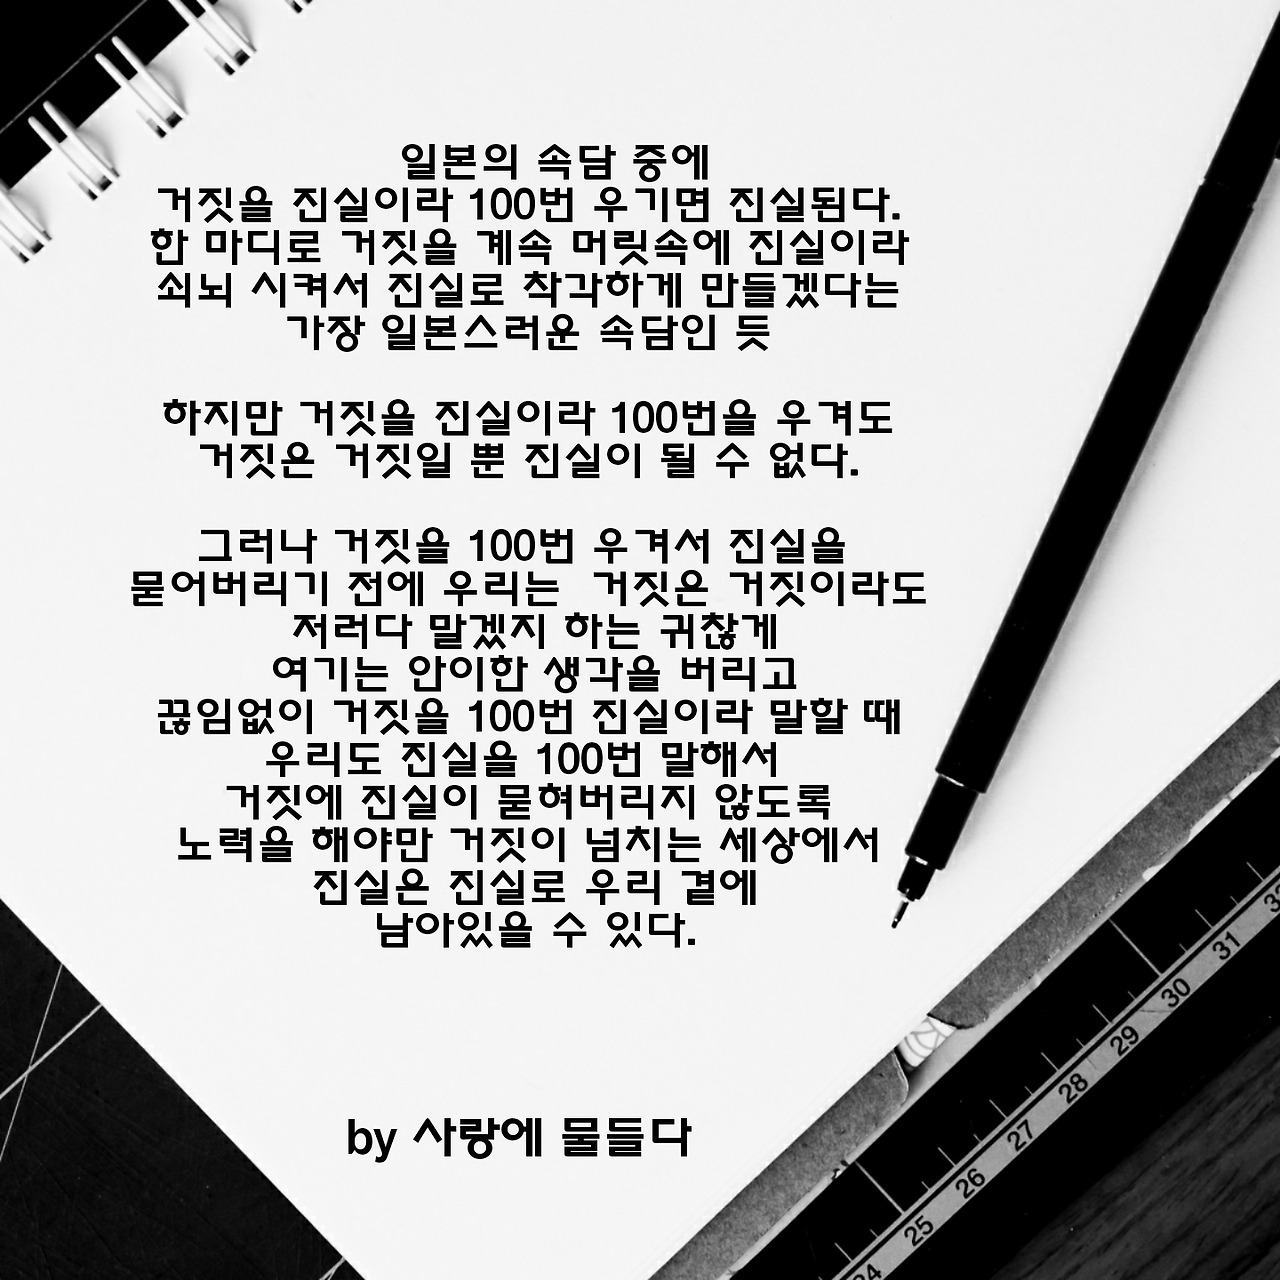 일본의 속담 중에
거짓을 진실이라 100번 우기면 진실된다.
한 마디로 거짓을 계속 머릿속에 진실이라
쇠뇌 시켜서 진실로 착각하게 만들겠다는
가장 일본스러운 속담인 듯
하지만 거짓을 진실이라 100번을 우겨도
거짓은 거짓일 뿐 진실이 될 수 없다.
그러나 거짓을 100번 우겨서 진실을
묻어버리기 전에 우리는 거짓은 거짓이라도
저러다 말겠지 하는 귀찮게
여기는 안이한 생각을 버리고
끊임없이 거짓을 100번 진실이라 말할 때
우리도 진실을 100번 말해서
거짓에 진실이 묻혀버리지 않도록
노력을 해야만 거짓이 넘치는 세상에서
진실은 진실로 우리 곁에
남아있을 수 있다.
by 사랑에 물들다
24 25 26 27 28 29 30 31 32